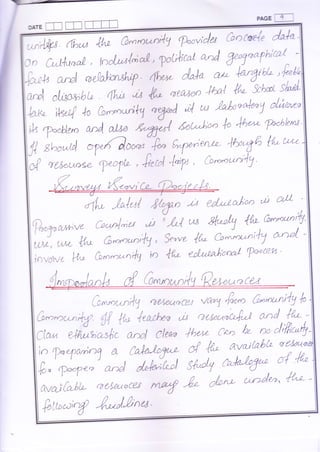 PAGE 9
DATE
Thus the Community Provides Concrete data
On Cultural, Industrial, political and geographical
facts and relationship. These data are tangible,
and This is the reason that the School Should
take itself to Community regard it as laboratory discover
its problem and also Suggest Solution to these Problems.
It Should open doors for Experience through the use
of resourse people, field trips, Community.
Surveys Service Projects
The latest Slogan is education is all
Progressive Countries is "Let us Study the Community,
use, use the Community, Serve the Community and
involve the Community in the educational process.
Importants of Community Resources
Community resources vary from Community to
Community. If the teacher is resourceful and the
Class enthusiastic and clear there Can be no difficulty
in Preparing a Catalogue of the available resources
for proper and detailed Study Catalogue of the
available resources may be done under the
following headlines.